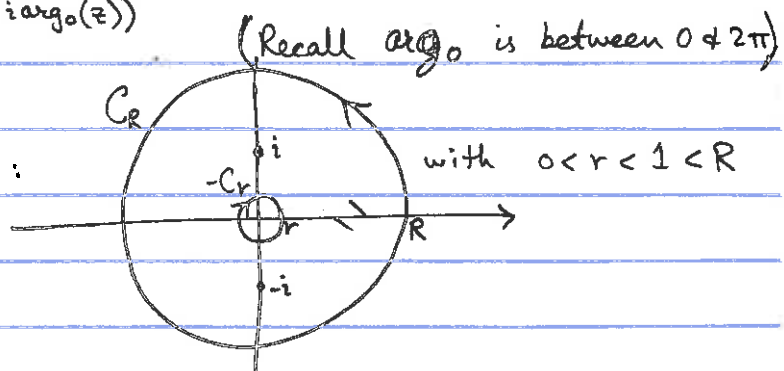 i arg₀(z))
(Recall arg₀ is between 0 & 2π)
C_R
i
with 0 < r < 1 < R
-C_r
r
R
-i